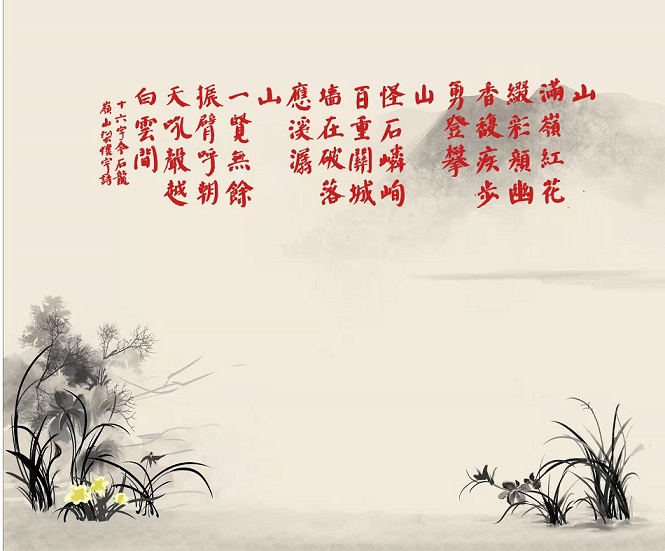 山
滿嶺紅花
綴彩顏幽
香馥疾步
勇登攀
山
怪石嶙峋
百重關城
墻在破落
應溪潺
山
一覽無餘
振臂呼朝
天吼聲越
白雲間
十六字令石龍
嶺山懷宇詩